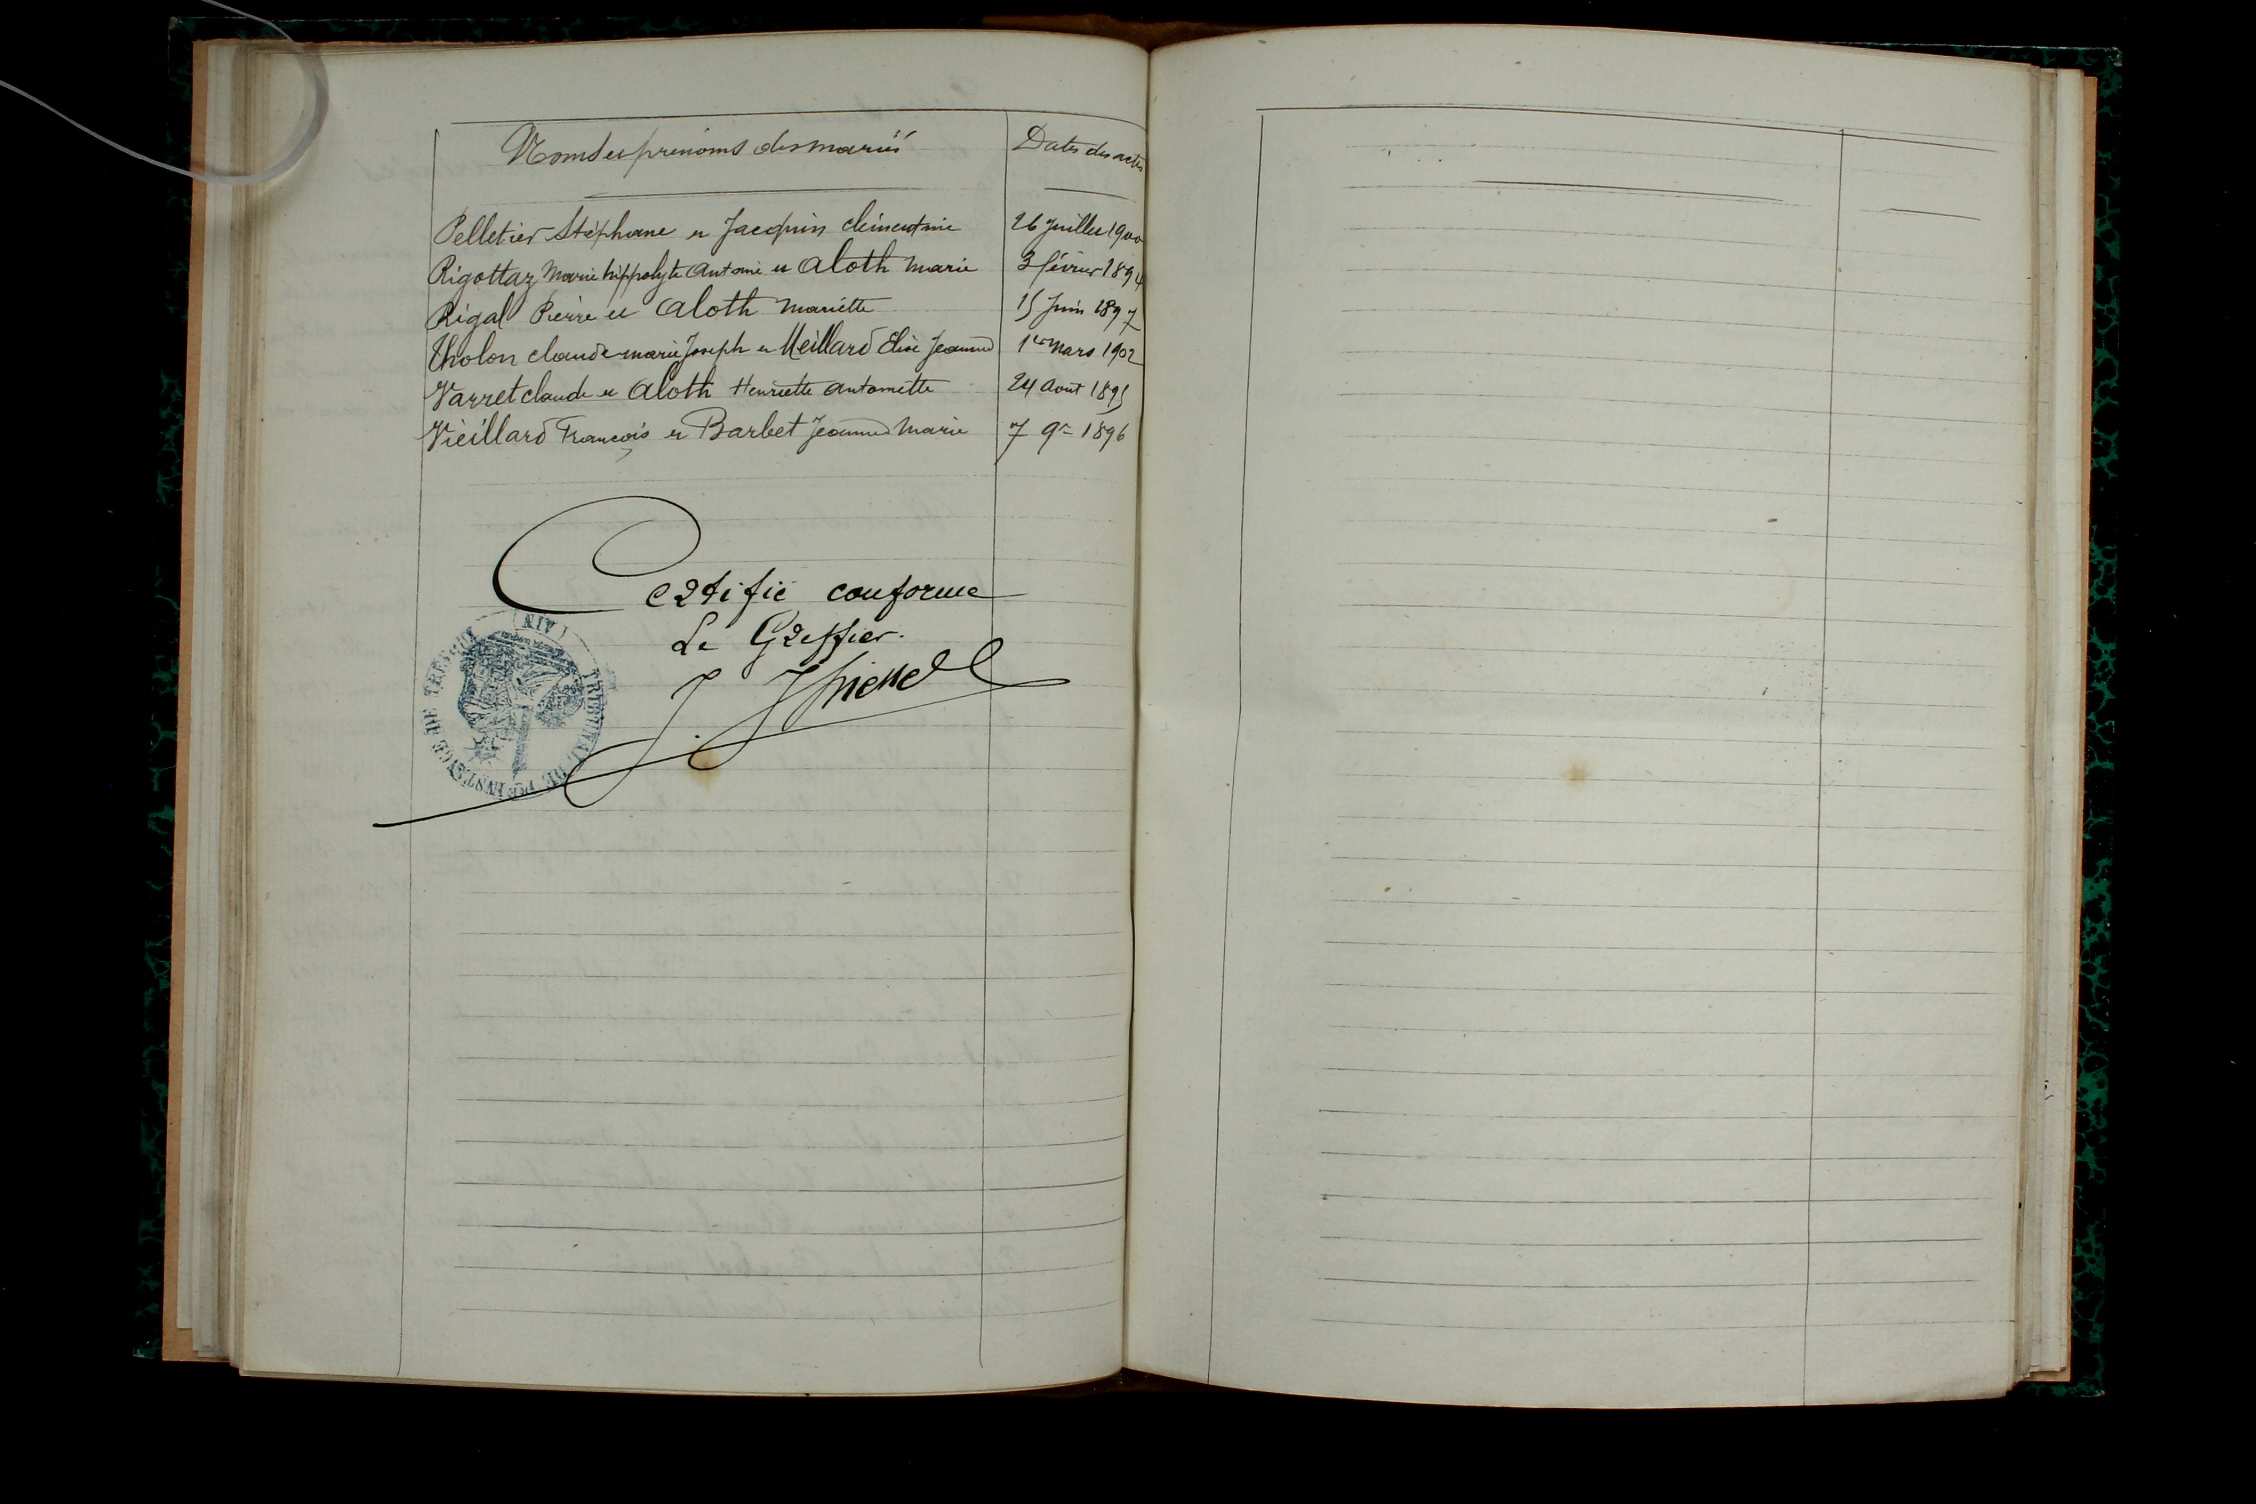 Noms et prénoms des mariés
Dates des actes
Pelletier Stéphane et Jacquin clémentine 26 Juillet 1900
Rigottaz Marie hippolyte Antoine et Aloth Marie 3 février 1894
Rigal Pierre et Aloth Mariette 15 Juin 1897
Tholon claude-marie Joseph et Meillard Elise Jeanne 1er Mars 1902
Varret claude et Aloth Henriette Antoinette 24 Aout 1895
Vieillard François et Barbet Jeanne Marie 7 9re 1896
Certifié conforme
Le Greffier.
TRIBUNAL DE 1re INSTANCE DE TRÉVOUX (AIN)